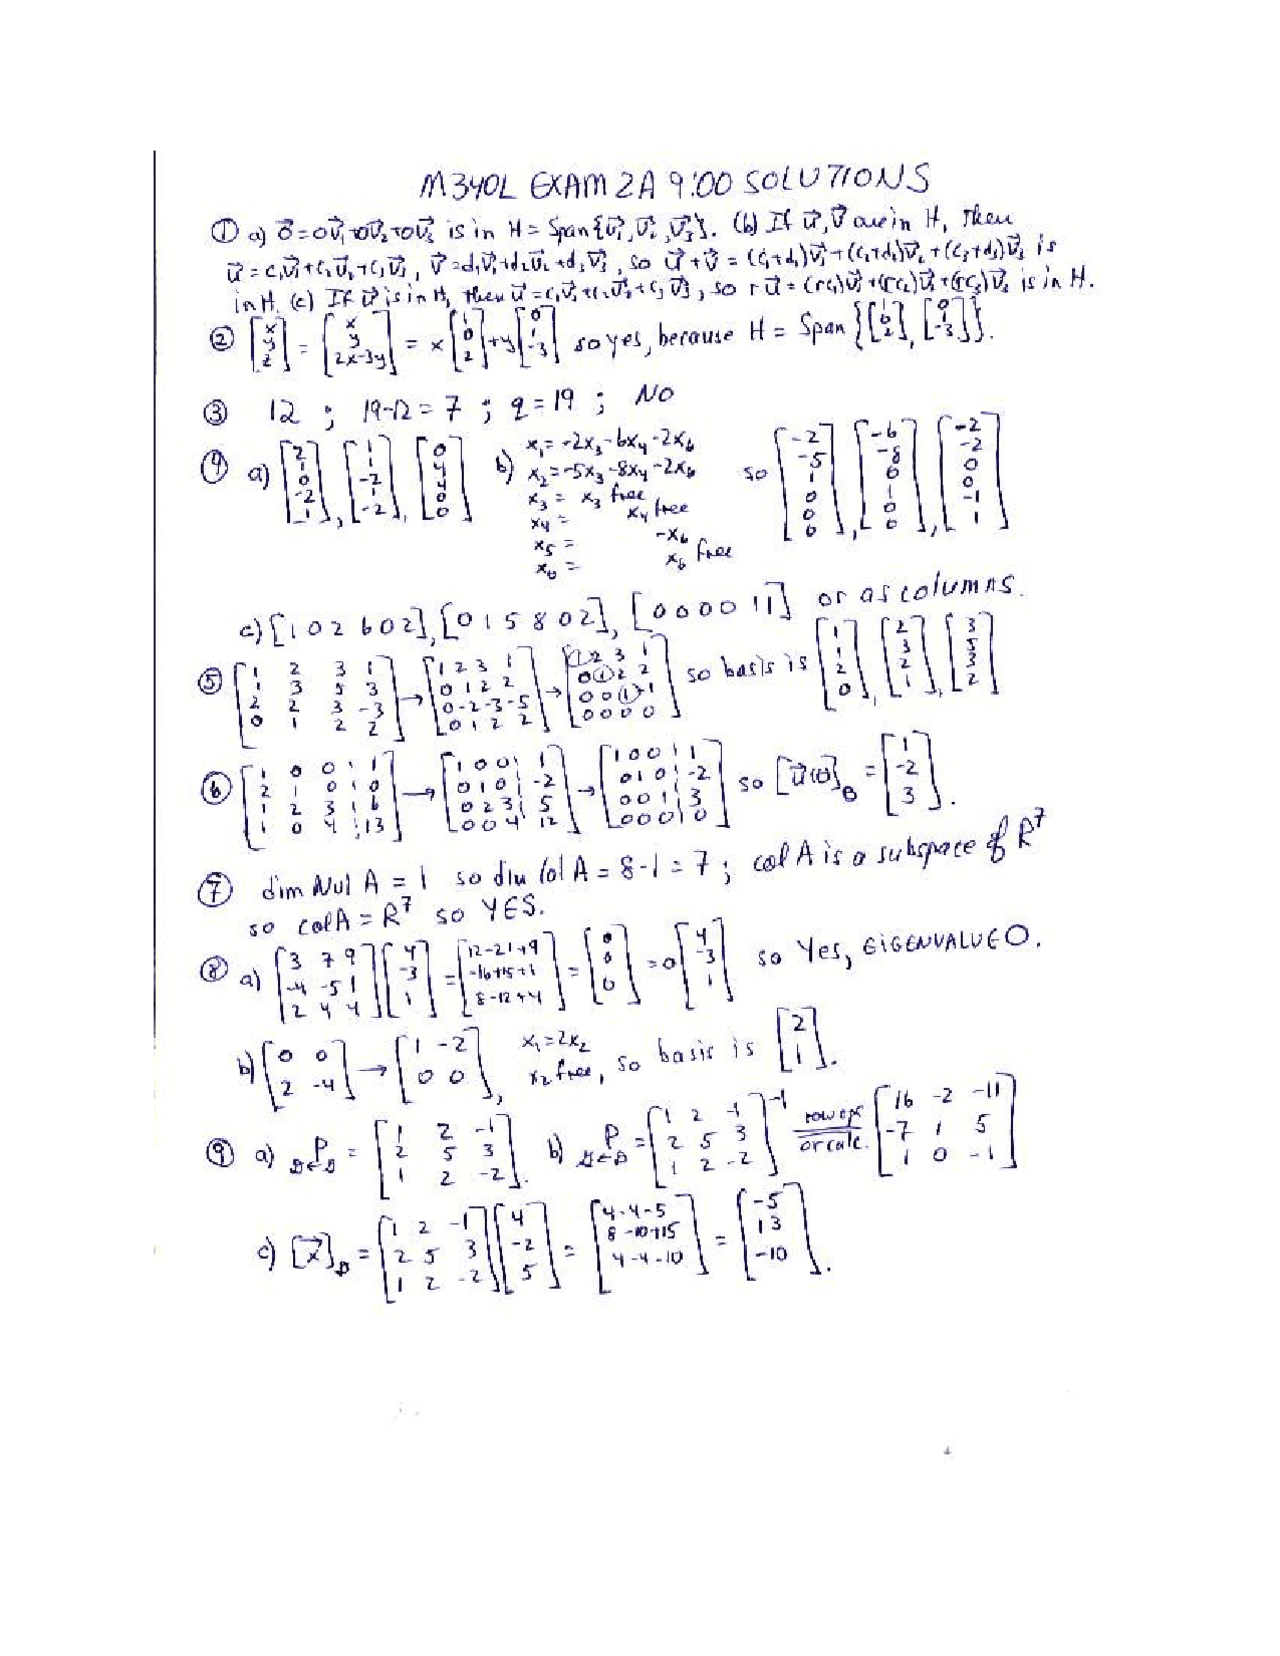 M340L EXAM 2A 9:00 SOLUTIONS
① a) 0⃗ = 0v⃗₁+0v⃗₂+0v⃗₃ is in H = Span{v⃗₁, v⃗₂, v⃗₃}. (b) If u⃗, v⃗ are in H, then
u⃗ = c₁v⃗₁+c₂v⃗₂+c₃v⃗₃, v⃗ = d₁v⃗₁+d₂v⃗₂+d₃v⃗₃, so u⃗+v⃗ = (c₁+d₁)v⃗₁+(c₂+d₂)v⃗₂+(c₃+d₃)v⃗₃ is
in H. (c) If u⃗ is in H, then u⃗ = c₁v⃗₁+c₂v⃗₂+c₃v⃗₃, so ru⃗ = (rc₁)v⃗₁+(rc₂)v⃗₂+(rc₃)v⃗₃ is in H.
② [x; y; z] = [x; y; 2x-3y] = x[1; 0; 2]+y[0; 1; -3] so yes, because H = Span{[1; 0; 2], [0; 1; -3]}.
③ 12 ; 19-12 = 7 ; q = 19 ; No
④ a) [2; 1; 0; -2; 1], [1; 1; -2; 1; -2], [0; 4; 4; 0; 0] b) x₁ = -2x₃-6x₄-2x₆
x₂ = -5x₃-8x₄-2x₆
x₃ = x₃ free
x₄ = x₄ free
x₅ = -x₆
x₆ = x₆ free
so [-2; -5; 1; 0; 0; 0], [-6; -8; 0; 1; 0; 0], [-2; -2; 0; 0; -1; 1]
c) [1 0 2 6 0 2], [0 1 5 8 0 2], [0 0 0 0 1 1] or as columns.
⑤ [1 2 3 1; 1 3 5 3; 2 2 3 -3; 0 1 2 2] → [1 2 3 1; 0 1 2 2; 0 -2 -3 -5; 0 1 2 2] → [1 2 3 1; 0 1 2 2; 0 0 1 -1; 0 0 0 0] so basis is [1; 1; 2; 0], [2; 3; 2; 1], [3; 5; 3; 2]
⑥ [1 0 0 | 1; 2 1 0 | 0; 1 2 3 | 6; 1 0 4 | 13] → [1 0 0 | 1; 0 1 0 | -2; 0 2 3 | 5; 0 0 4 | 12] → [1 0 0 | 1; 0 1 0 | -2; 0 0 1 | 3; 0 0 0 | 0] so [u⃗]B = [1; -2; 3].
⑦ dim Nul A = 1 so dim Col A = 8-1 = 7 ; col A is a subspace of R⁷
so col A = R⁷ so YES.
⑧ a) [3 7 9; -4 -5 1; 2 4 4][4; -3; 1] = [12-21+9; -16+15+1; 8-12+4] = [0; 0; 0] = 0[4; -3; 1] so Yes, EIGENVALUE 0.
b) [0 0; 2 -4] → [1 -2; 0 0], x₁ = 2x₂
x₂ free, so basis is [2; 1].
⑨ a) P = [1 2 -1; 2 5 3; 1 2 -2]. b) P = [1 2 -1; 2 5 3; 1 2 -2]⁻¹ row ops or calc. [16 -2 -11; -7 1 5; 1 0 -1]
c) [x⃗] = [1 2 -1; 2 5 3; 1 2 -2][4; -2; 5] = [4-4-5; 8-10+15; 4-4-10] = [-5; 13; -10].